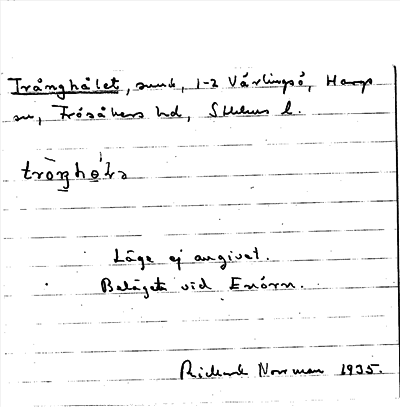 Trånghålet, sund, 1-2 Värlingsö, Hargs
sn, Frösåkers hd, Sthlms l.
tròŋhó̱lə
Läge ej angivet.
Beläget vid Enörn.
Rickard Norrman 1935.